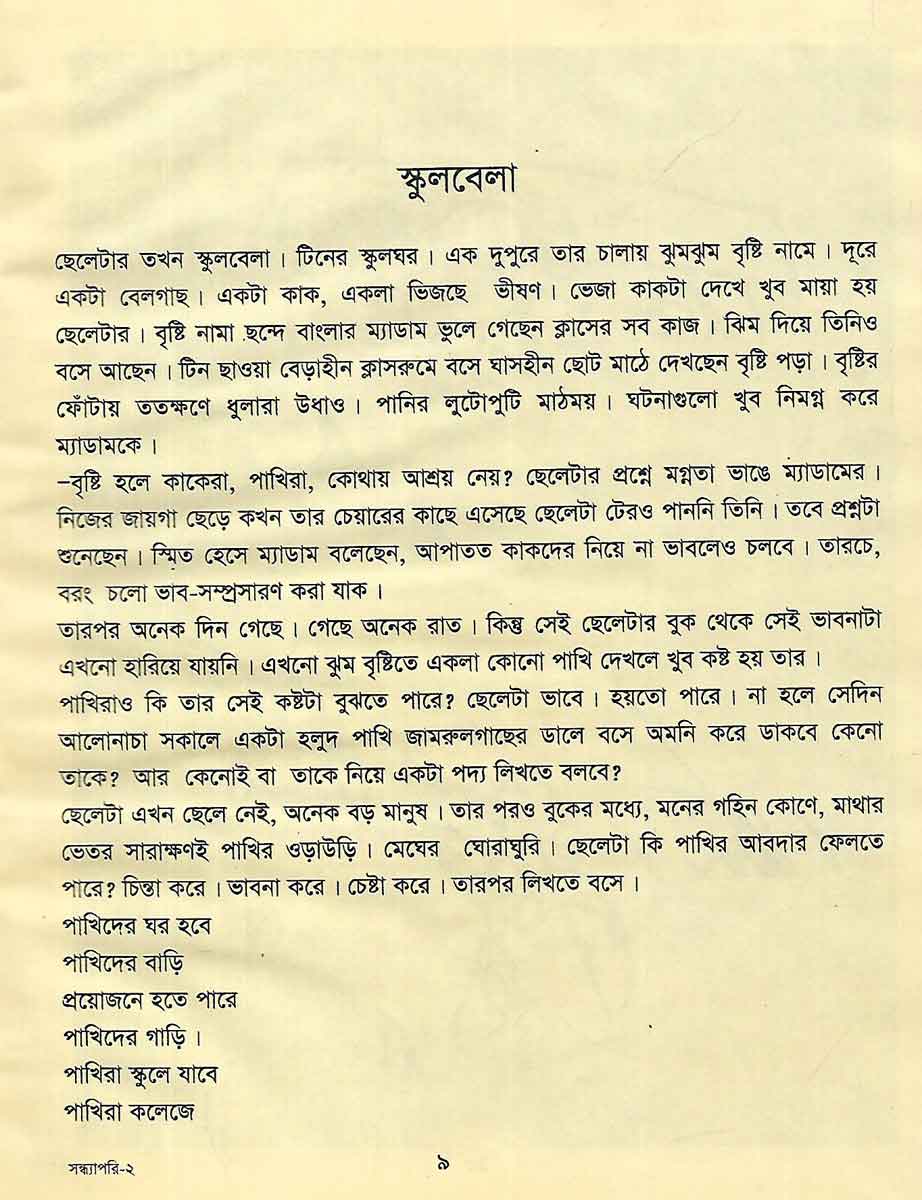 স্কুলবেলা
ছেলেটার তখন স্কুলবেলা । টিনের স্কুলঘর । এক দুপুরে তার চালায় ঝুমঝুম বৃষ্টি নামে । দূরে
একটা বেলগাছ । একটা কাক, একলা ভিজছে ভীষণ । ভেজা কাকটা দেখে খুব মায়া হয়
ছেলেটার । বৃষ্টি নামা ছন্দে বাংলার ম্যাডাম ভুলে গেছেন ক্লাসের সব কাজ । ঝিম দিয়ে তিনিও
বসে আছেন । টিন ছাওয়া বেড়াহীন ক্লাসরুমে বসে ঘাসহীন ছোট মাঠে দেখছেন বৃষ্টি পড়া । বৃষ্টির
ফোঁটায় ততক্ষণে ধুলারা উধাও । পানির লুটোপুটি মাঠময় । ঘটনাগুলো খুব নিমগ্ন করে
ম্যাডামকে ।
–বৃষ্টি হলে কাকেরা, পাখিরা, কোথায় আশ্রয় নেয়? ছেলেটার প্রশ্নে মগ্নতা ভাঙে ম্যাডামের ।
নিজের জায়গা ছেড়ে কখন তার চেয়ারের কাছে এসেছে ছেলেটা টেরও পাননি তিনি । তবে প্রশ্নটা
শুনেছেন । স্মিত হেসে ম্যাডাম বলেছেন, আপাতত কাকদের নিয়ে না ভাবলেও চলবে । তারচে,
বরং চলো ভাব-সম্প্রসারণ করা যাক ।
তারপর অনেক দিন গেছে । গেছে অনেক রাত । কিন্তু সেই ছেলেটার বুক থেকে সেই ভাবনাটা
এখনো হারিয়ে যায়নি । এখনো ঝুম বৃষ্টিতে একলা কোনো পাখি দেখলে খুব কষ্ট হয় তার ।
পাখিরাও কি তার সেই কষ্টটা বুঝতে পারে? ছেলেটা ভাবে । হয়তো পারে । না হলে সেদিন
আলোনাচা সকালে একটা হলুদ পাখি জামরুলগাছের ডালে বসে অমনি করে ডাকবে কেনো
তাকে? আর কেনোই বা তাকে নিয়ে একটা পদ্য লিখতে বলবে?
ছেলেটা এখন ছেলে নেই, অনেক বড় মানুষ । তার পরও বুকের মধ্যে, মনের গহিন কোণে, মাথার
ভেতর সারাক্ষণই পাখির ওড়াউড়ি । মেঘের ঘোরাঘুরি । ছেলেটা কি পাখির আবদার ফেলতে
পারে? চিন্তা করে । ভাবনা করে । চেষ্টা করে । তারপর লিখতে বসে ।
পাখিদের ঘর হবে
পাখিদের বাড়ি
প্রয়োজনে হতে পারে
পাখিদের গাড়ি ।
পাখিরা স্কুলে যাবে
পাখিরা কলেজে
সন্ধ্যাপরি-২
৯